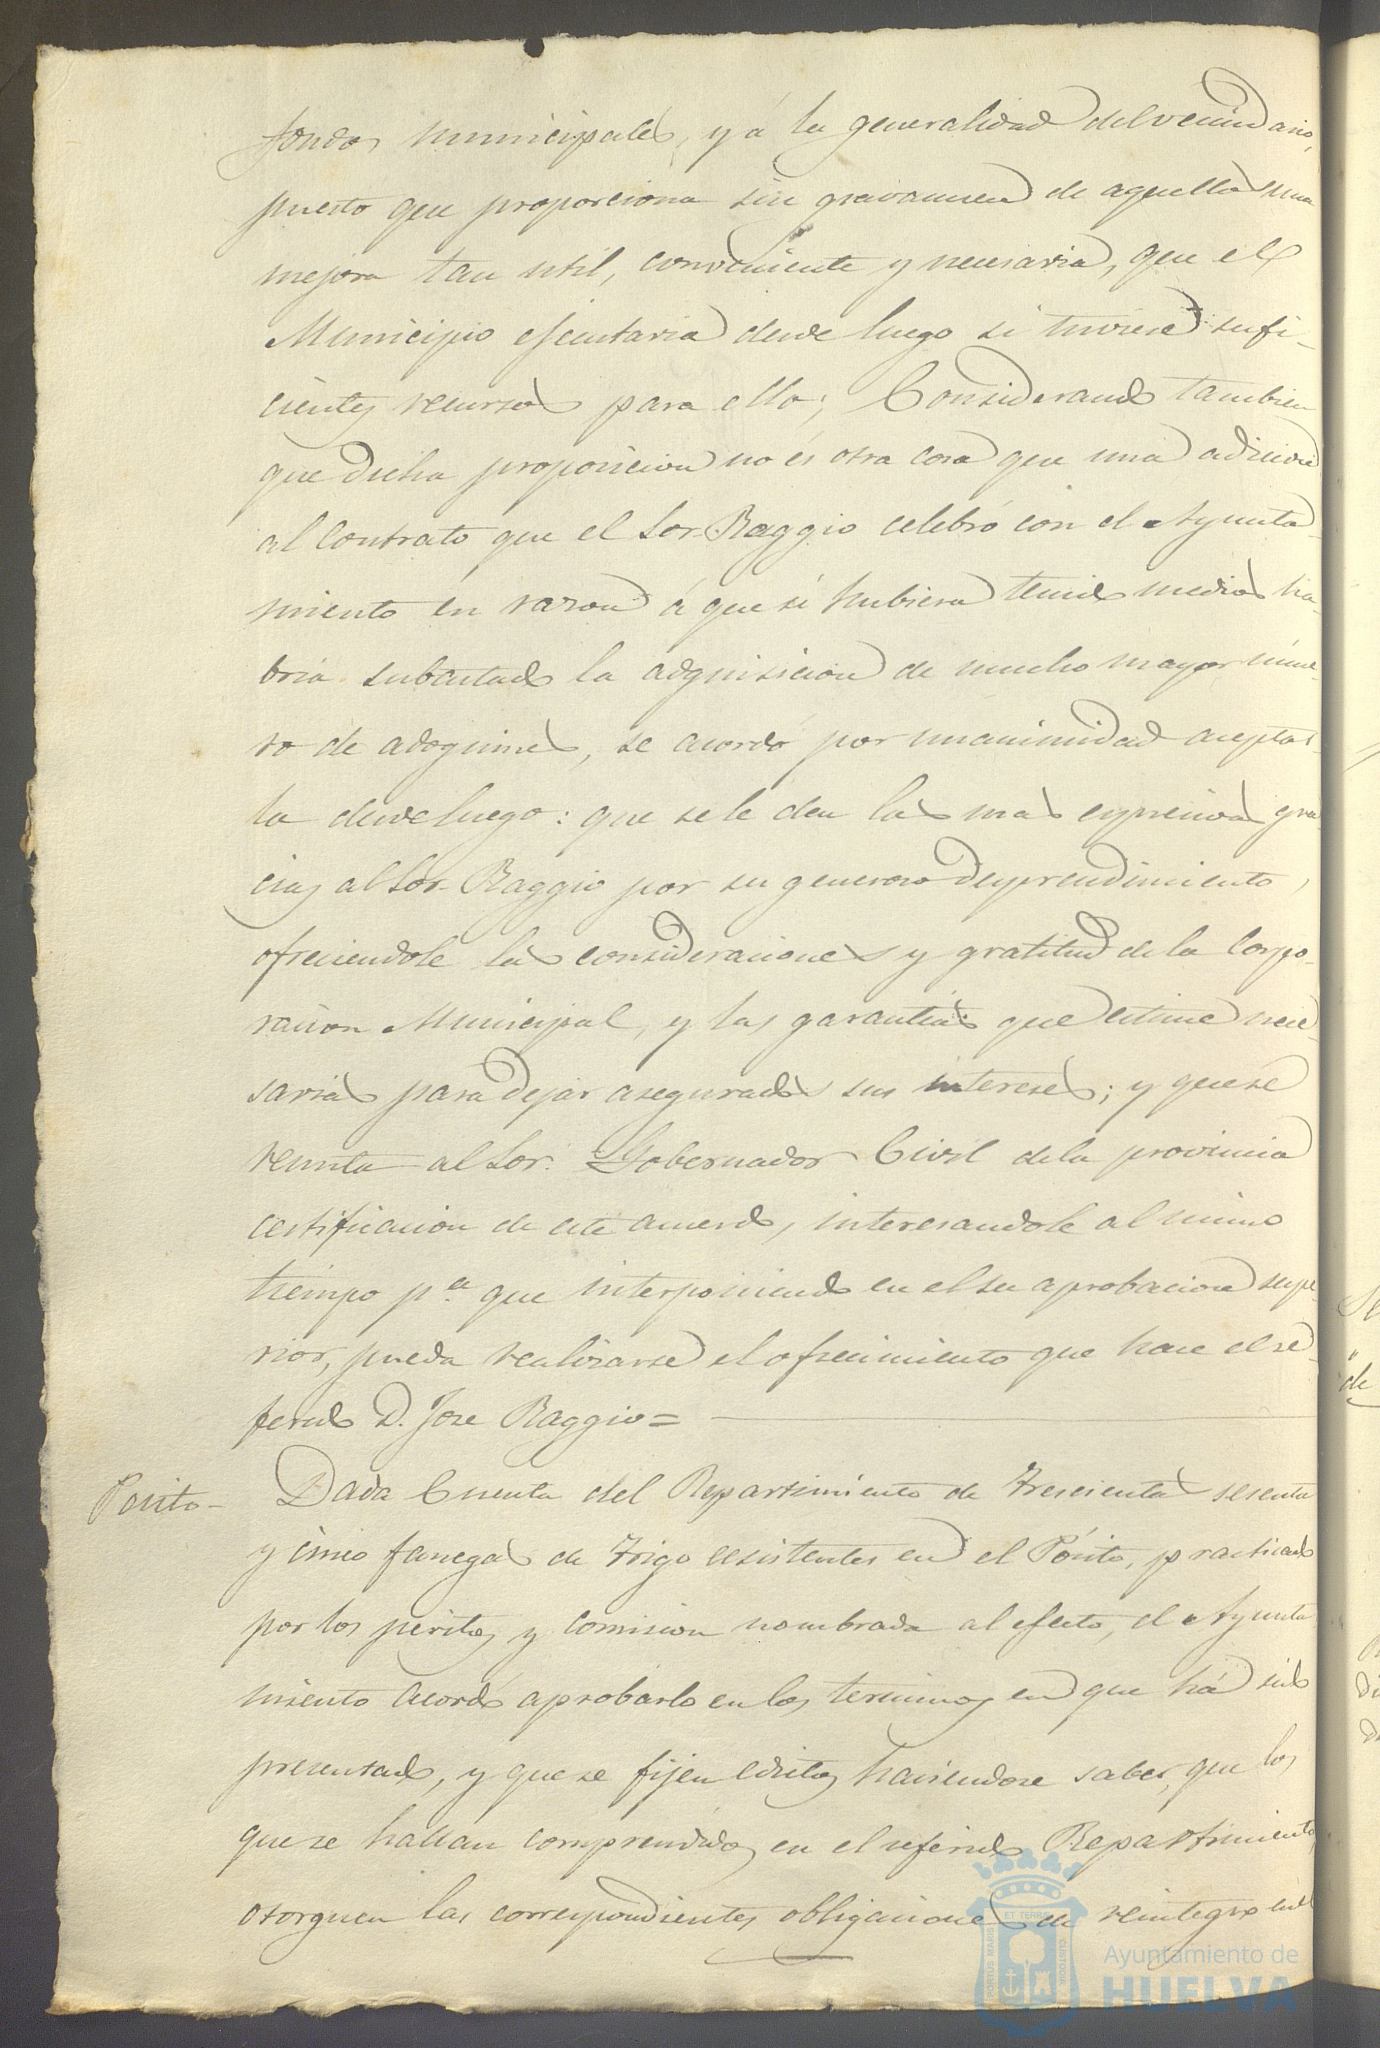 fondos municipales, y á la generalidad del vecindario,
puesto que proporciona sin gravamen de aquellos una
mejora tan util, conveniente y necesaria, que el
Municipio ejecutaria desde luego si tuviese sufi-
cientes recursos para ello; Considerando tambien
que dicha proposicion no és otra cosa que una adicion
al contrato que el Sor. Baggio celebró con el Ayunta-
miento en razon á que si hubiera tenido medios ha-
bria subastado la adquisicion de mucho mayor núme-
ro de adoquines, se acordó por unanimidad aceptar-
la desde luego: que se le den las mas expresivas gra-
cias al Sor. Baggio por su generoso desprendimiento,
ofreciendole las consideraciones y gratitud de la Corpo-
racion Municipal, y las garantias que estime nece-
sarias para dejar asegurados sus intereses; y que se
remita al Sor. Gobernador Civil de la provincia
certificacion de este acuerdo, interesandole al mismo
tiempo p.a que interponiendo en el su aprobacion supe-
rior, pueda realizarse el ofrecimiento que hace el re-
ferido D. Jose Baggio =
Posito - Dada Cuenta del Repartimiento de Trescientas sesenta
y cinco fanegas de Trigo existentes en el Pósito, practicado
por los peritos y comision nombrada al efecto, el Ayunta-
miento acordó aprobarlo en los terminos en que há sido
presentado, y que se fijen edictos haciendose saber, que los
que se hallan comprendidos en el referido Repartimiento
otorguen las correspondientes obligaciones de reintegro
PORTUS MARIS ET TERRAE CUSTODIA
Ayuntamiento de
HUELVA
de